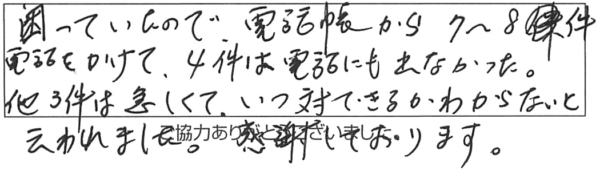 困っていたので、電話帳から7〜8件
電話をかけて、4件は電話にも出なかった。
他3件は急しくて、いつ対できるかわからないと
云われました。感謝しております。
ご協力ありがとうございました